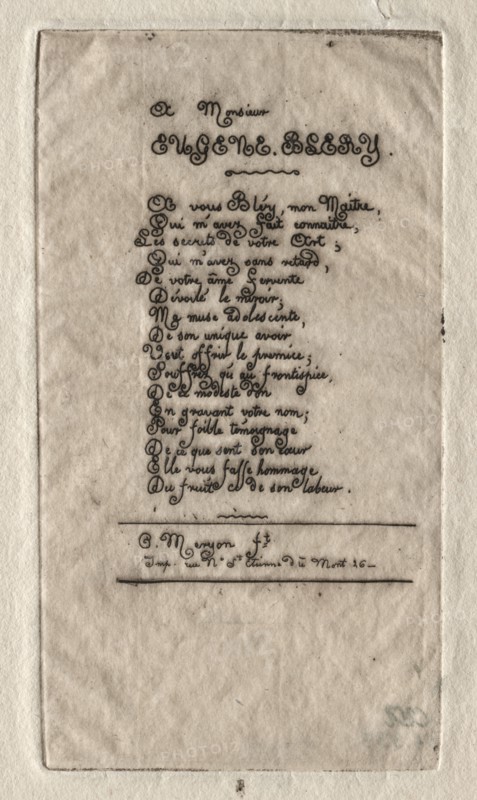 A Monsieur
EUGENE. BLERY.
A vous Bléry, mon Maitre,
Qui m'avez fait connaitre,
Les secrets de votre Art ;
Qui m'avez sans retard,
De votre âme fervente
Dévoilé le miroir;
Ma muse adolescente,
De son unique avoir
Veut offrir le premice ;
Souffrez qu'au frontispice,
De ce modeste don
En gravant votre nom ;
Pour foible témoignage
De ce que sent son cœur
Elle vous fasse hommage
Du fruit de son labeur.
C. Meryon ft
Imp. rue Ne St Etienne du Mont 26
PHOTO12